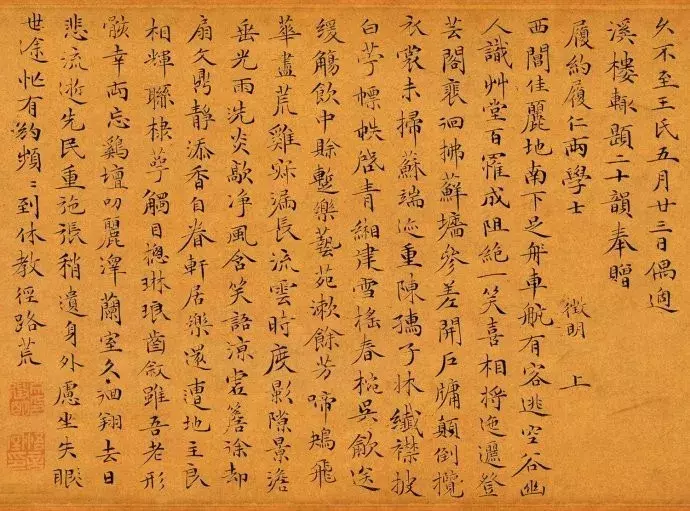 久不至王氏五月廿三日偶過
溪樓輒題二十韻奉贈
履約履仁兩學士
徵明 上
西閶佳麗地南下足車航有客逃空谷幽
人識艸堂百罹成阻絕一笑喜相將迤邐登
芸閣裵徊拂蘚墻參差開戶牖顛倒攬
衣裳未掃蘇端迹重陳孺子牀纖襟披
白苧幖帙啓青緗建雪搖春椀吳歈送
緩觴飲中賒蹔樂藝苑漱餘芳啼鴂飛
華盡荒雞寐漏長流雲時度影隙景澹
垂光雨洗炎歊凈風含笑語涼簷涂却
扇文鼎靜添香自眷軒居樂還遭地主良
相輝聯棣萼觸目摠琳琅齒敘雖吾老形
骸幸兩忘鷄壇叨麗澤蘭室久徊翔去日
悲流逝先民重施張稍遺身外慮坐失眼
世途忙有約頻〻到休教徑路荒